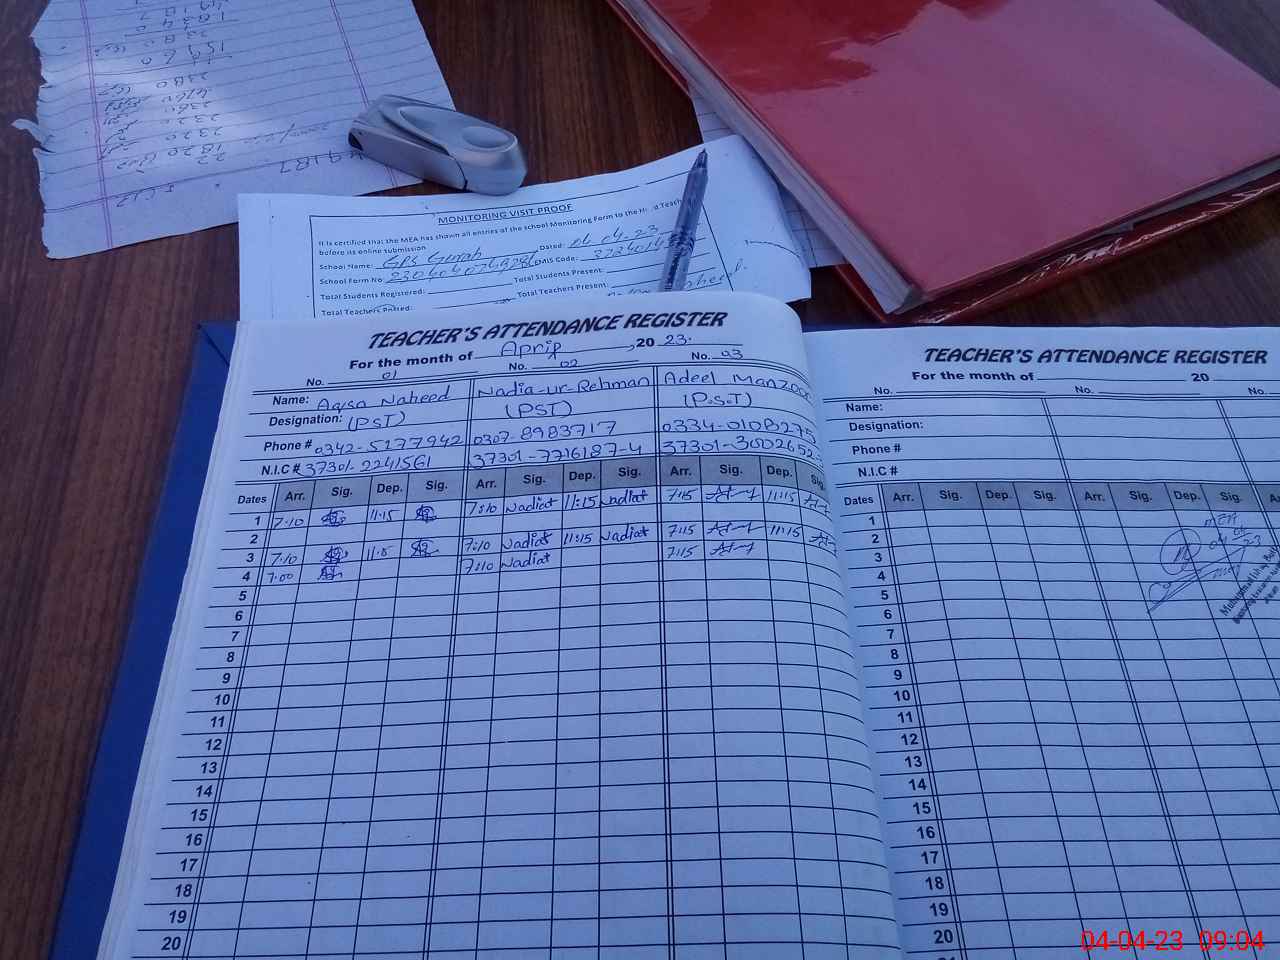 MONITORING VISIT PROOF
It is certified that the MEA has shown all entries of the school Monitoring Form to the
before its online submission Dated: 04.04.23
School Name: GPS Gurah
School Form No
Total Students Registered: Total Students Present:
Total Teachers Posted: Total Teachers Present:
TEACHER'S ATTENDANCE REGISTER
For the month of April, 20 23.
No. 01 No. 02 No. 03
Name: Aqsa Naheed Nadia-ur-Rehman Adeel Manzoor
Designation: (PST) (PST) (P.S.T)
Phone # 0342-5177942 0307-8983717 0334-0108275
N.I.C # 37301-2241561 37301-7716187-4 37301-3002652-
Dates Arr. Sig. Dep. Sig. Arr. Sig. Dep. Sig. Arr. Sig. Dep. Sig.
1 7:10 11:15 7:10 Nadiat 11:15 Nadiat 7:15 11:15
2
3 7:10 11:15 7:10 Nadiat 11:15 Nadiat 7:15 11:15
4 7:00 7:10 Nadiat 7:15
5
6
7
8
9
10
11
12
13
14
15
16
17
18
19
20
TEACHER'S ATTENDANCE REGISTER
For the month of 20
No. No. No.
Name:
Designation:
Phone #
N.I.C #
Dates Arr. Sig. Dep. Sig. Arr. Sig. Dep. Sig.
1
2
3
4
5
6
7
8
9
10
11
12
13
14
15
16
17
18
19
20
04-04-23 09:04